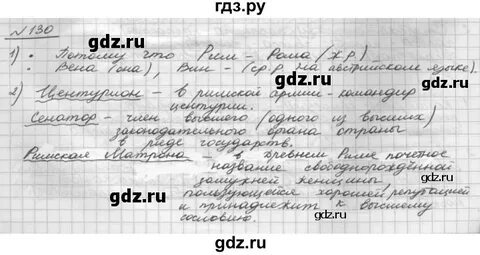 гдз.ру
№ 130
1) • Потому что Рим - Рома (ж.р)
Вена (она), Вин - (ср.р. на австрийском языке).
2) Центурион - в римской армии - командир
центурии.
Сенатор - член высшего (одного из высших)
законодательного органа страны
в ряде государств.
Римская Матрона - в древнем Риме почетное
название свободнорождённой
замужней женщины,
пользующейся хорошей репутацией
и принадлежит к высшему
сословию.
gdz.ru
gdz.ru
gdz.ru
gdz.ru
gdz.ru
gdz.ru